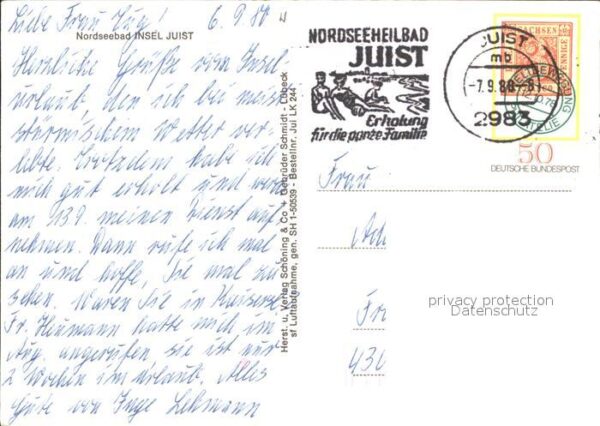 Liebe Frau Zug! 6.9.80
Nordseebad INSEL JUIST
Herzliche Grüße vom Insel
urlaub den ich bei meist
stürmischem Wetter ver-
lebte. Trotzdem habe ich
mich gut erholt und werde
am 13.9. meinen Dienst auf
nehmen. Dann rufe ich mal
an und hoffe, Sie mal zu
sehen. Waren Sie in
Fr. Heumann hatte mich im
Aug. angerufen sie ist nur
2 Wochen im Urlaub. Alles
Gute von Inge Lehmann
Herst. u. Verlag Schöning & Co + Gebrüder Schmidt - Lübeck
sf Luftabnahme, gen. SH 1-50539 - Bestellnr. Jui LK 244
NORDSEEHEILBAD
JUIST
Erholung
für die ganze Familie
JUIST
mb
-7.9.80-
2983
SACHSEN
PFENNIGE
50
DEUTSCHE BUNDESPOST
Frau
Ach
Fr
430
privacy protection
Datenschutz